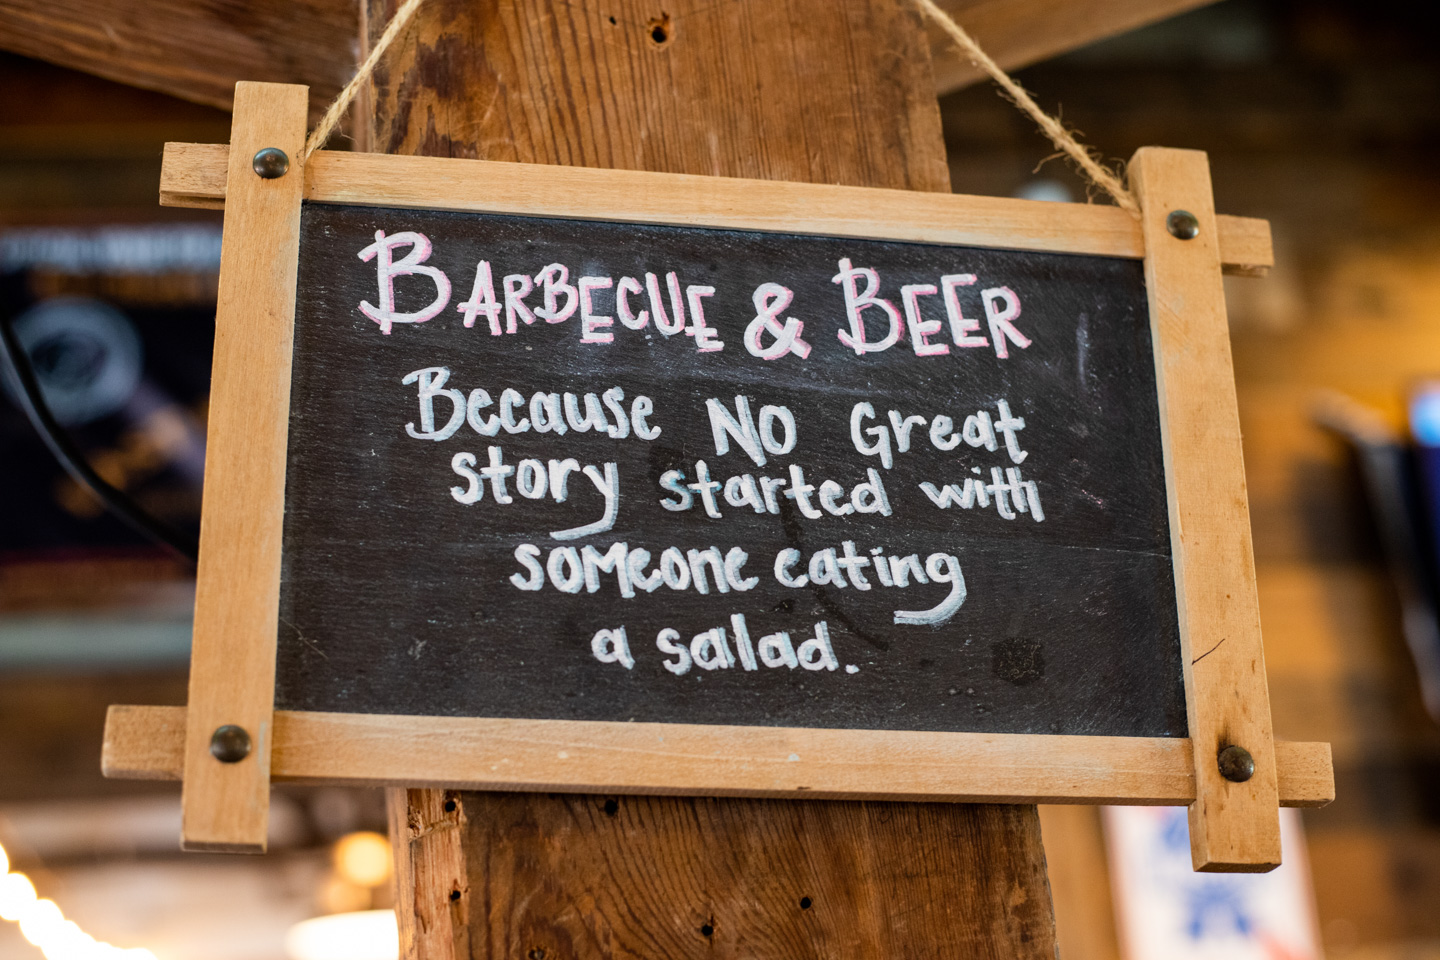 BARBECUE & BEER
Because NO Great
story started with
someone eating
a salad.